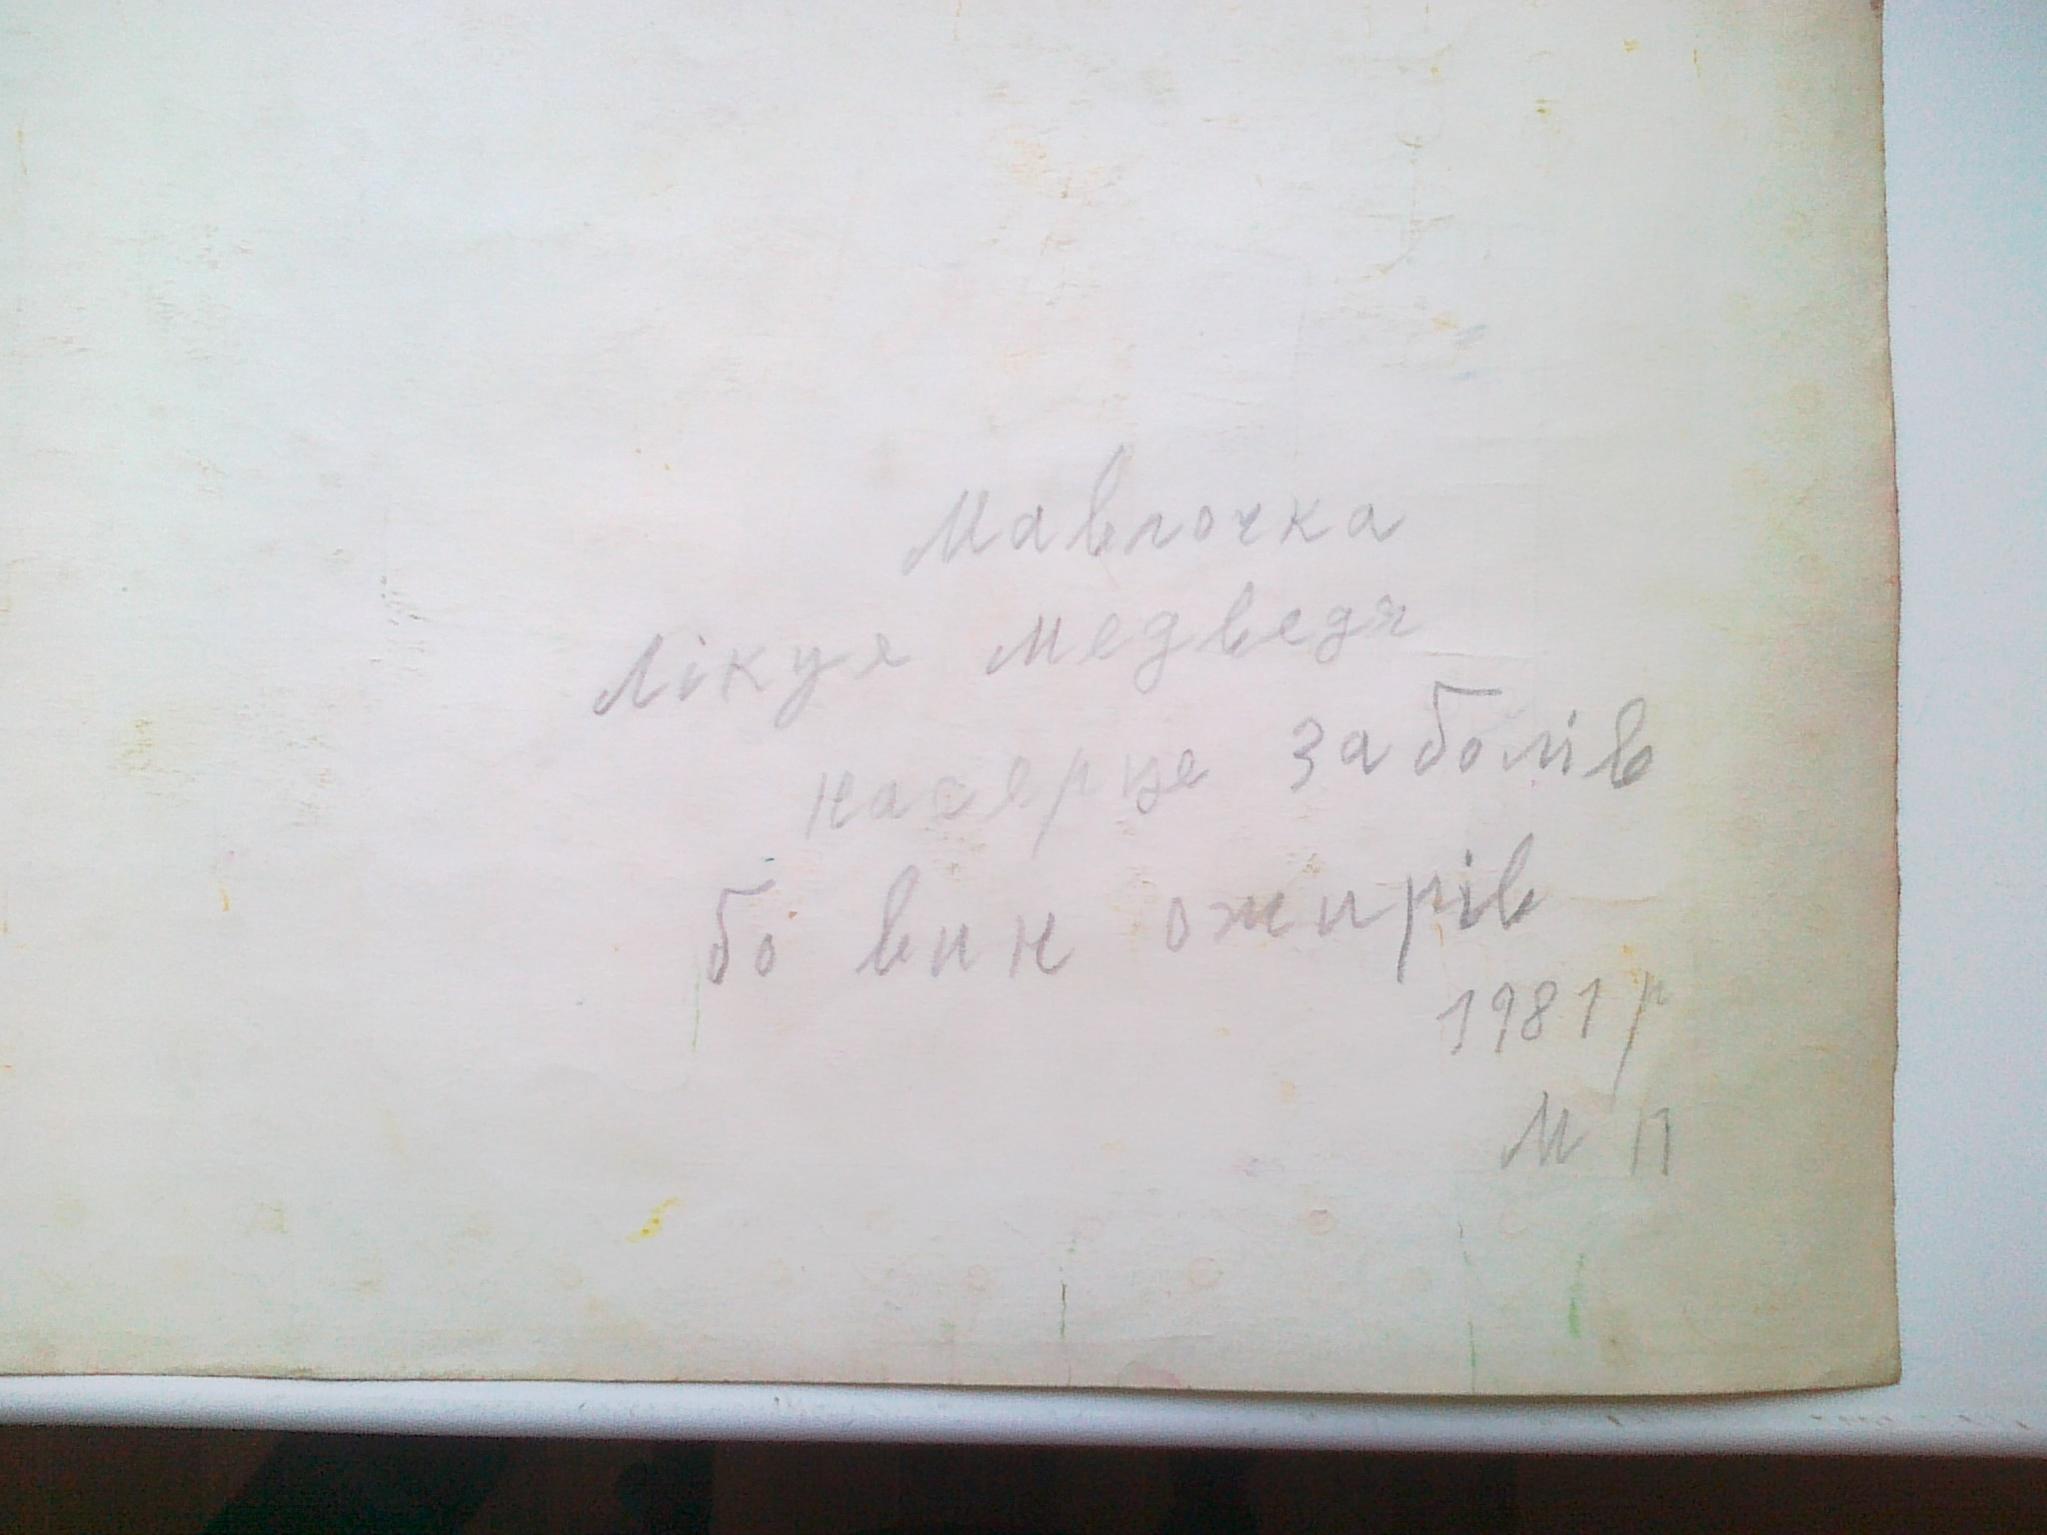 Мавпочка
лікуя медведя
насерце заболів
бо вин ожирів
1981 р
М П